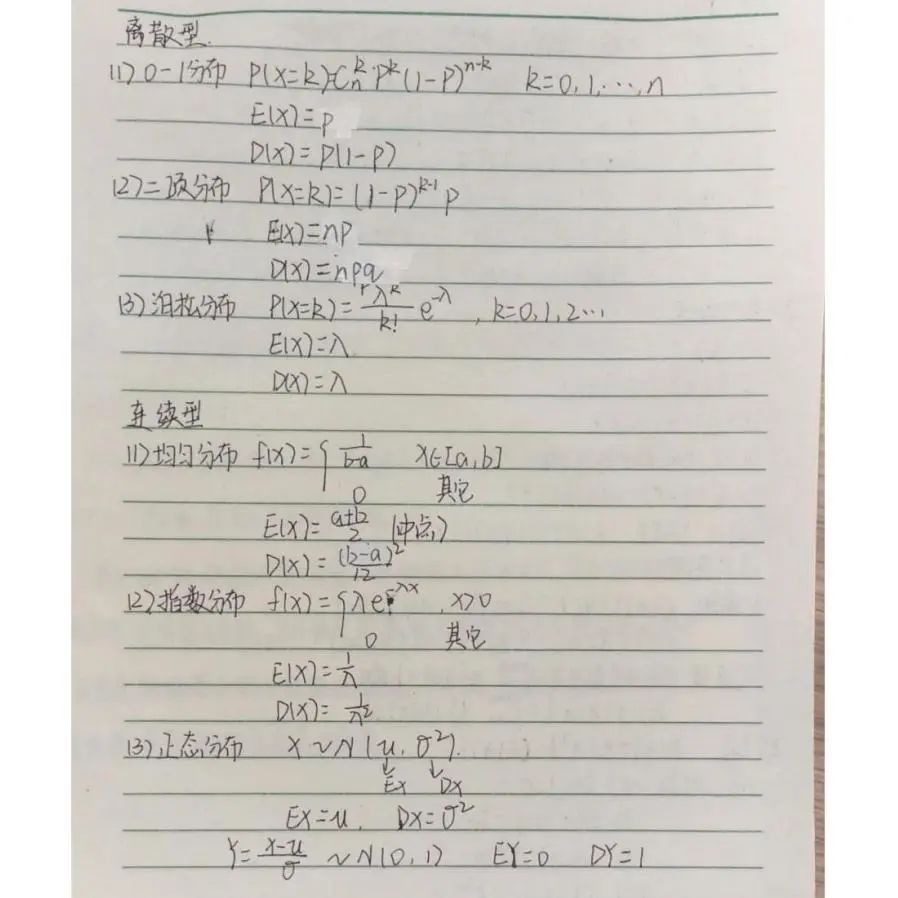 离散型
(1) 0-1分布 P(X=k)=C_n^k p^k (1-p)^{n-k} k=0,1,…,n
E(X)=p
D(X)=p(1-p)
(2)二项分布 P(X=k)=(1-p)^{k-1} p
E(X)=np
D(X)=npq
(3)泊松分布 P(X=k)=\frac{λ^k}{k!} e^{-λ}, k=0,1,2…
E(X)=λ
D(X)=λ
连续型
(1)均匀分布 f(x)={ \frac{1}{b-a} x∈[a,b]
0 其它
E(X)=\frac{a+b}{2} (中点)
D(X)=\frac{(b-a)^2}{12}
(2)指数分布 f(x)={ λe^{-λx}, x>0
0 其它
E(X)=\frac{1}{λ}
D(X)=\frac{1}{λ^2}
(3)正态分布 X~N(u, σ^2).
↓ ↓
Ex Dx
EX=u, DX=σ^2
Y=\frac{x-u}{σ} ~N(0,1) EY=0 DY=1